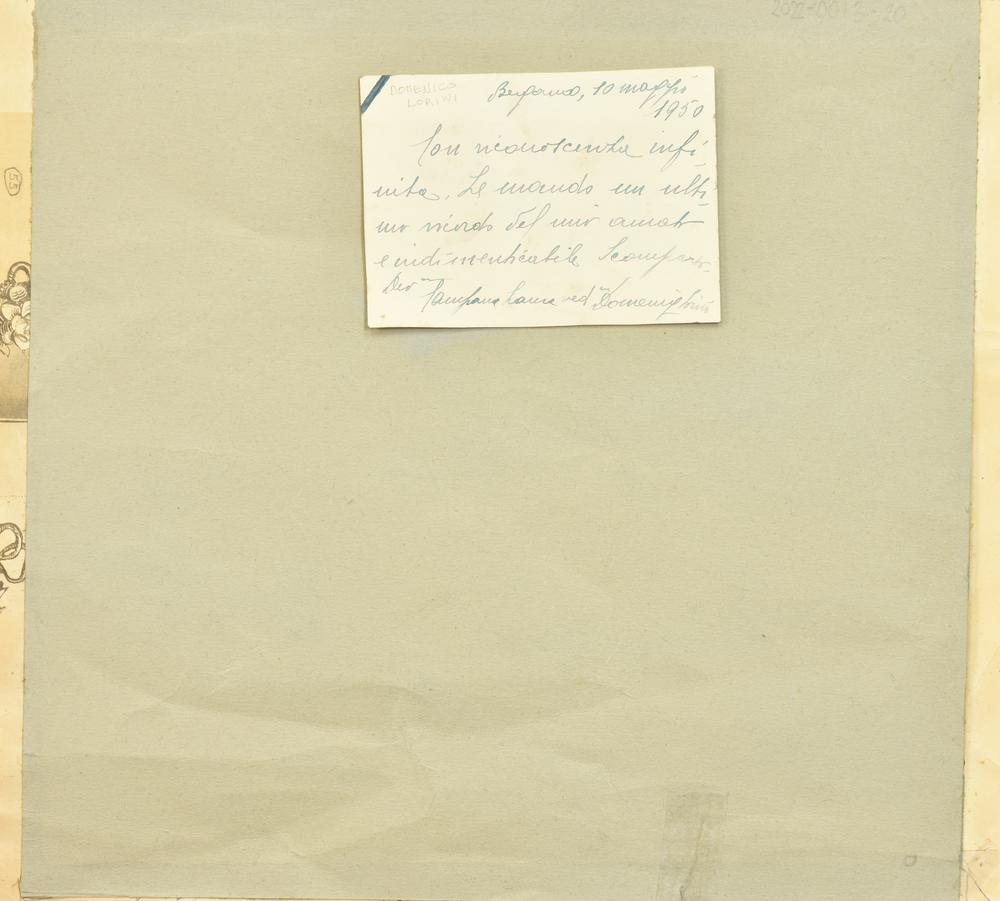 2022-0013-20
DOMENICO
LORINI
Bergamo, 10 maggio
1950
Con riconoscenza infi-
nita, Le mando un ulti-
mo ricordo del mio amato
e indimenticabile Scomparso.
Dev.ma ved. Domenighini
53